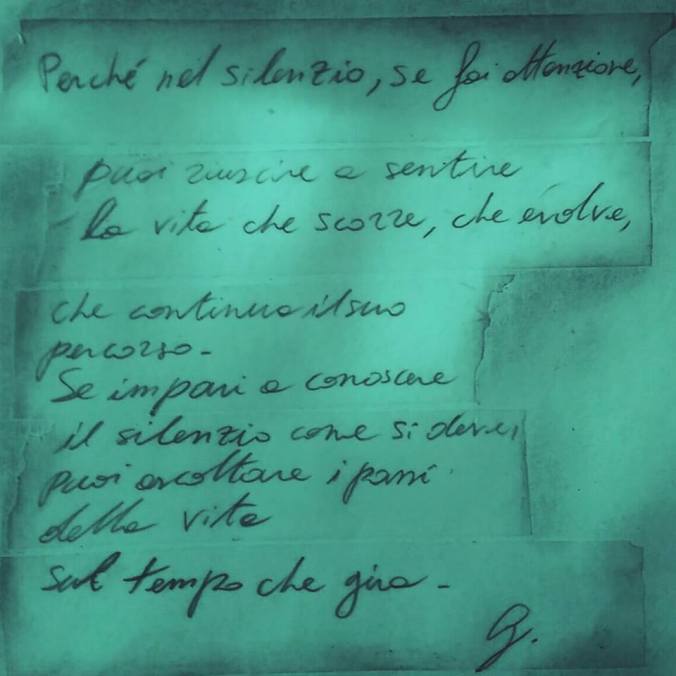 Perché nel silenzio, se fai attenzione,
puoi riuscire a sentire
la vita che scorre, che evolve,
che continua il suo
percorso-
Se impari a conoscere
il silenzio come si deve,
puoi ascoltare i passi
della vita
sul tempo che gira-
G.